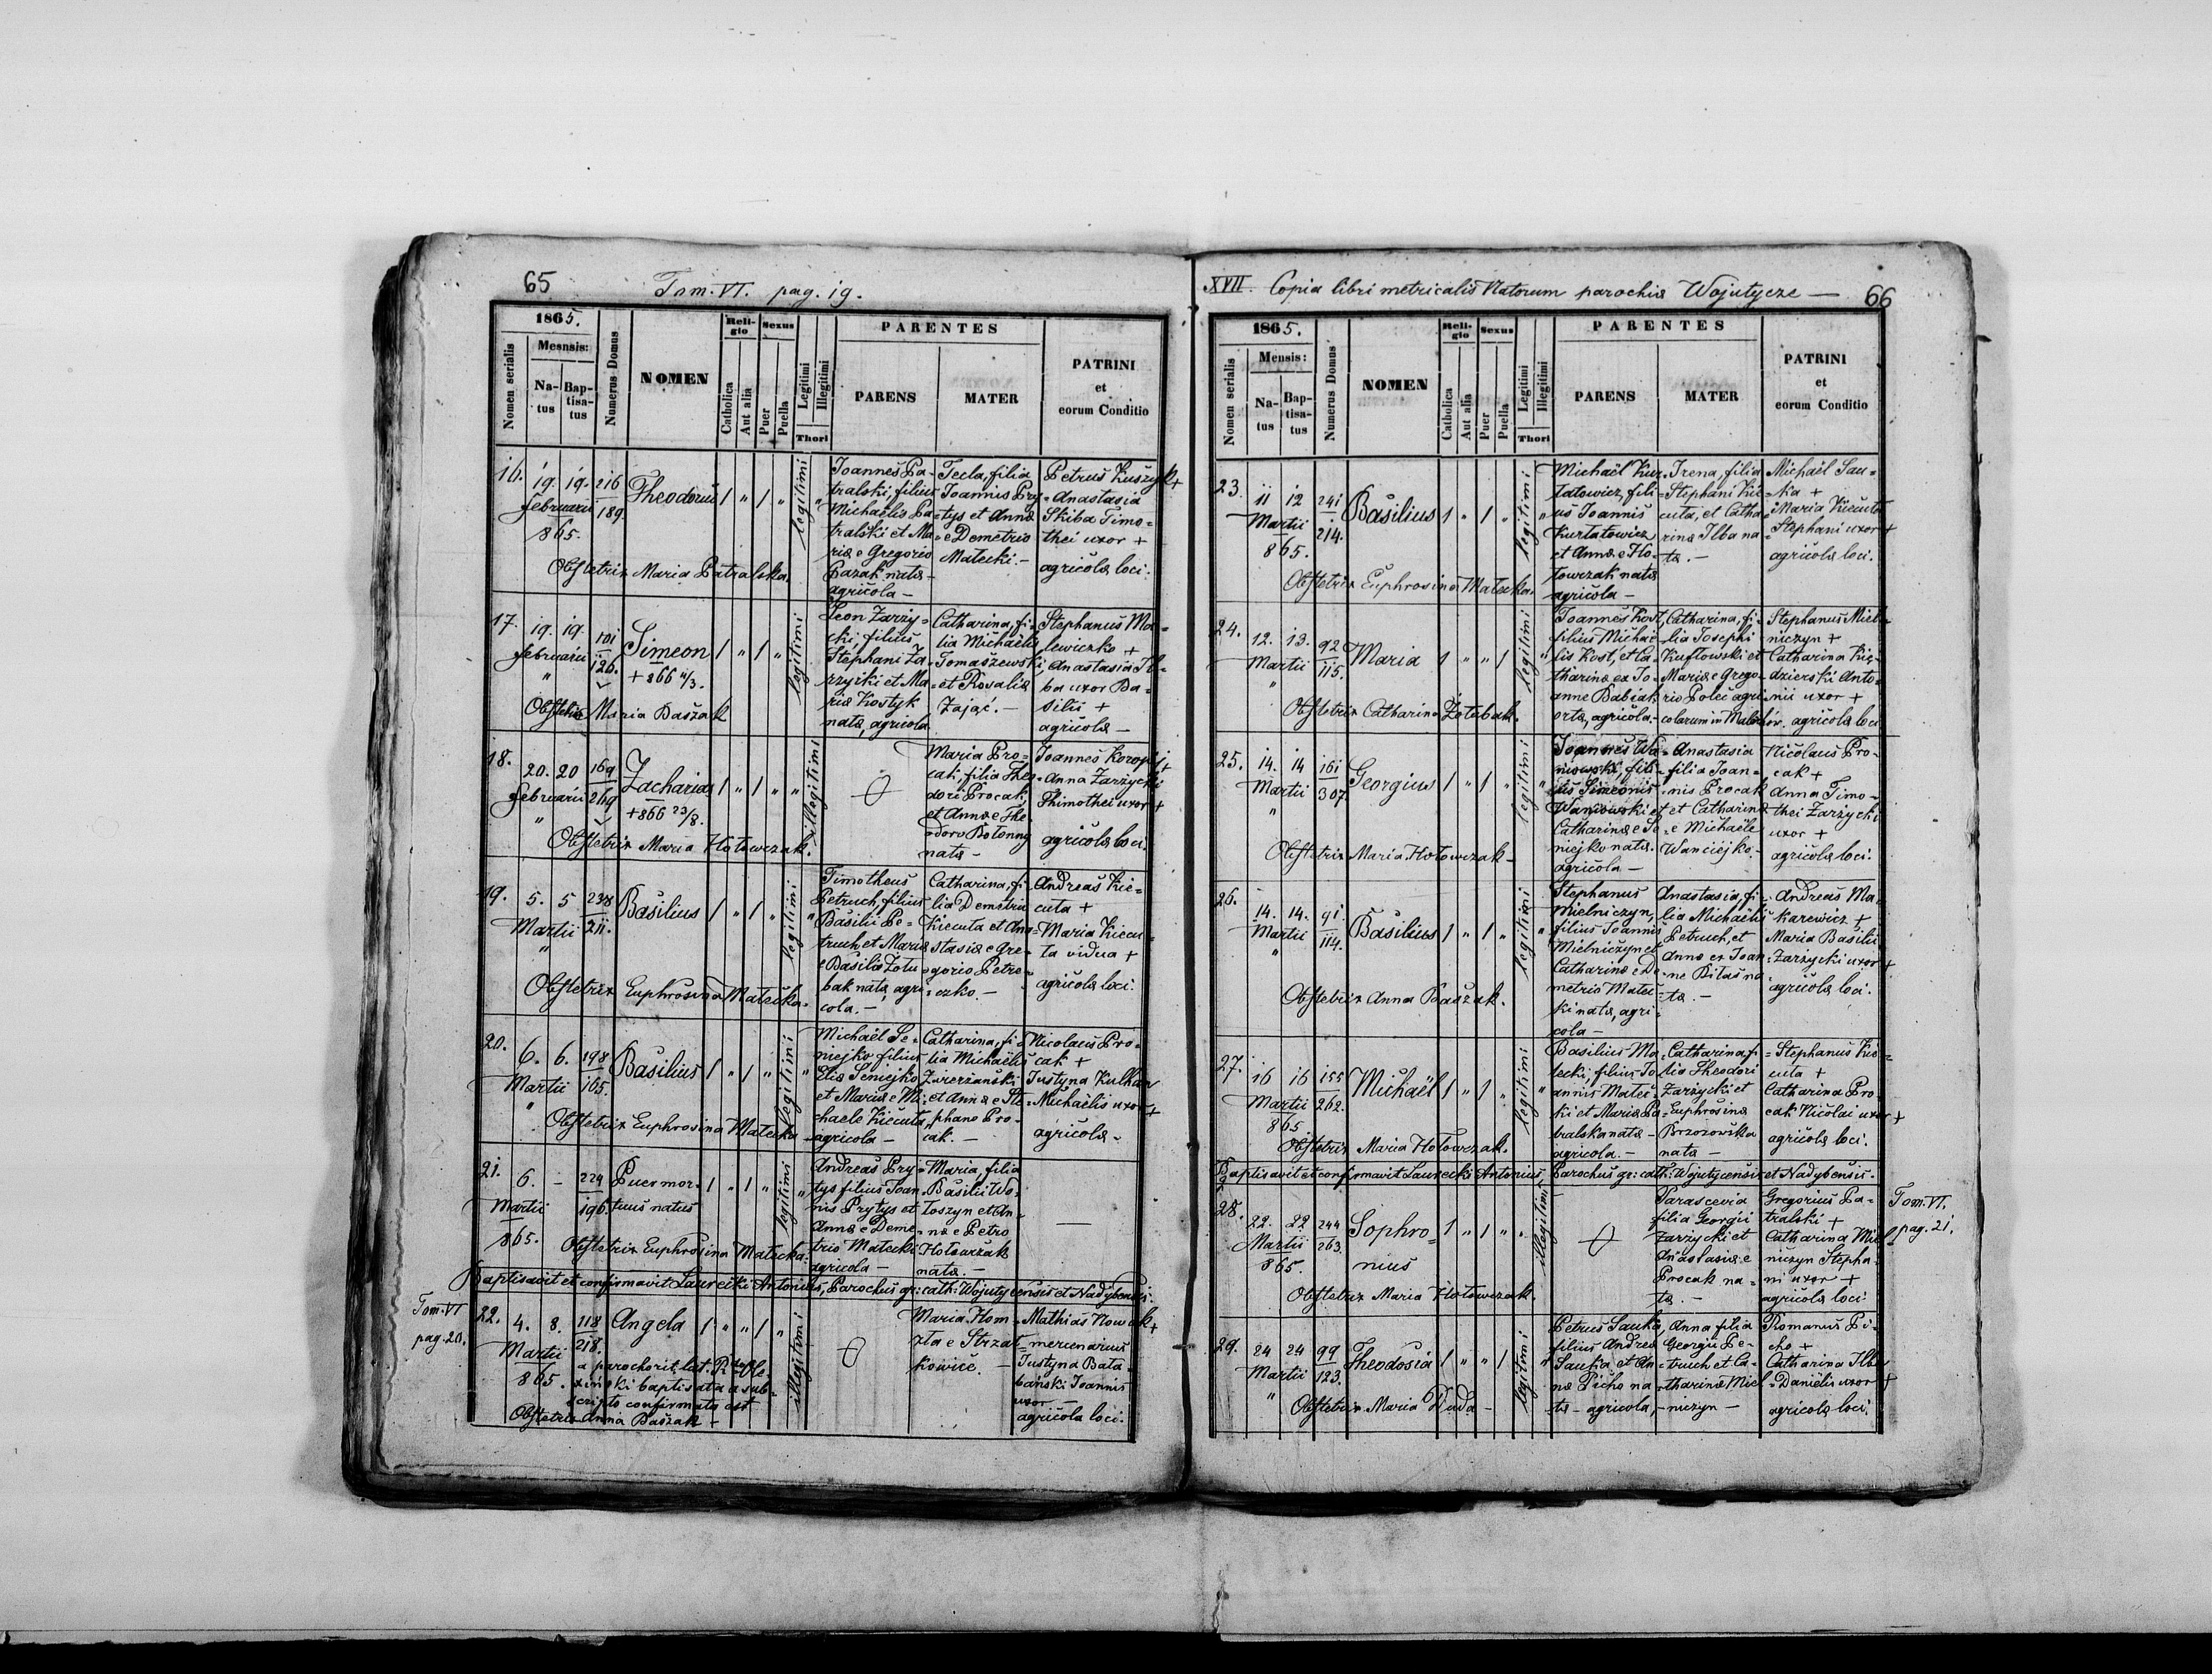 65
Tom. VI. pag. 19.
1865.
Mesnsis:
Nomen serialis
Na-
tus
Bap-
tisa-
tus
Numerus Domus
NOMEN
Reli-
gio
Catholica
Aut alia
Sexus
Puer
Puella
Legitimi
Illegitimi
Thori
PARENTES
PARENS
MATER
PATRINI
et
eorum Conditio
16.
19. 19.
februarii
865.
216
189.
Theodorus
1 " 1 "
legitimi
Joannes Pa-
tralski, filius
Michaëlis Pa-
tralski et Ma-
riæ e Gregorio
Pazak nata-
agricola -
Tecla, filia
Joannis Pry-
tys et Annæ
e Demetrio
Matecki. -
Petrus Kuszyk +
Anastasia
Skiba Timo=
thei uxor +
agricolæ loci.
Obstetrix Maria Patralska.
17.
19. 19.
februarii
"
101
126.
Simeon
+ 866 11/3.
1 " 1 "
legitimi
Leon Zarzy=
cki filius
Stephani Za-
rzycki et Ma-
riæ Kostyk
nata, agricola
Catharina, fi-
lia Michaëlis
Tomaszewski
et Rosaliæ
Zając. -
Stephanus Ma=
lewiczko +
Anastasia Il-
ba uxor Ba-
silii +
agricolæ -
Obstetrix Maria Baszak
18.
20. 20
februarii
"
169
269
Zacharias
+ 866 23/8.
1 " 1 "
illegitimi
Maria Pro-
cak, filia Theo-
dori Procak,
et Annæ e The
odoro Botonny
nata -
Joannes Koropij +
Anna Zarzycki
Thimothei uxor +
agricolæ loci.
Obstetrix Maria Hołowczak.
19.
5. 5
Martii
"
238
211.
Basilius
1 " 1 "
legitimi
Timotheus
Petruch, filius
Basilii Pe-
truch et Mariæ
e Basilio Żołu
bak nata, agri-
cola. -
Catharina, fi-
lia Demetrii
Kiecuta et Ana-
stasiæ e Gre-
gorio Petre-
czko. -
Andreas Kie=
cuta +
Maria Kiecu-
ta vidua +
agricolæ loci.
Obstetrix Euphrosina Matecka.
20.
6. 6.
Martii
"
198
165.
Basilius
1 " 1 "
legitimi
Michaël Se=
niejko filius
Eliæ Seniejko
et Mariæ e Mi-
chaele Kiecuta,
agricola -
Catharina, fi-
lia Michaëlis
Zwierżanski
et Annæ e Ste-
phano Pro-
cak. -
Nicolaus Pro=
cak +
Justyna Kulhan
Michaëlis uxor +
agricolæ -
Obstetrix Euphrosina Matecka
21.
6. -
Martii
865.
224
196.
Puer mor-
tuus natus
1 " 1 "
legitimi
Andreas Pry-
tys filius Joan-
nis Prytys et
Annæ e Deme-
trio Matecki
agricola -
Maria, filia
Basilii Wo-
łoszyn et An-
næ e Petro
Hołowczak
nata. -
-
Obstetrix Euphrosina Matecka.
Baptisavit et confirmavit Laurecki Antonius, Parochus gr: cath: Wojutycensis et Nadybensis.
Tom. VI
pag. 20.
22.
4. 8.
Martii
865.
118
218.
Angela
1 " " 1
illegitimi
Maria Hom-
zła e Strzał-
kowice. -
Mathias Nowak +
mercenarius
Justyna Bała-
bański Joannis
uxor -
agricolæ loci.
a parocho rit. lat.
baptisata a sub-
scripto confirmata est
Obstetrix Anna Baszak -
XVII. Copia libri metricalis Natorum parochiæ Wojutycze -
66
1865.
Mensis:
Nomen serialis
Na-
tus
Bap-
tisa-
tus
Numerus Domus
NOMEN
Reli-
gio
Catholica
Aut alia
Sexus
Puer
Puella
Legitimi
Illegitimi
Thori
PARENTES
PARENS
MATER
PATRINI
et
eorum Conditio
23.
11 12
Martii
865.
241
214.
Basilius
1 " 1 "
legitimi
Michaël Kur-
łatowicz, fili-
us Joannis
Kurłatowicz
et Annæ e Ho-
łowczak nata
agricola -
Irena, filia
Stephani Kie-
cuta, et Catha-
rinæ Ilba na-
ta. -
Michaël Sau=
ka +
Maria Kiecuta
Stephani uxor +
agricolæ loci.
Obstetrix Euphrosina Matecka.
24.
12. 13.
Martii
"
92
115.
Maria
1 " " 1
legitimi
Joannes Kost,
filius Michaë-
lis Kost, et Ca-
tharinæ ex Jo-
anne Babiak
orta, agricola.
Catharina, fi-
lia Josephi
Kustowski et
Mariæ e Grego-
rio Poleć agri-
colarum in
Stephanus Miel-
niczyn +
Catharina Kię-
dzierski Anto-
nii uxor +
agricolæ loci
Obstetrix Catharina Żołubak.
25.
14. 14
Martii
"
161
307.
Georgius
1 " 1 "
legitimi
Joannes Wa-
niowski, fili-
us Simeonis
Waniowski et
Catharinæ e Se-
niejko nata.
agricola -
Anastasia
filia Joan-
nis Procak
et Catharinæ
e Michaële
Wanciejko.
Nicolaus Pro-
cak +
Anna Timo-
thei Zarzycki
uxor +
agricolæ loci.
Obstetrix Maria Hołowczak -
26.
14. 14.
Martii
"
91
114.
Basilius
1 " 1 "
legitimi
Stephanus
Mielniczyn,
filius Joannis
Mielniczyn et
Catharinæ e De-
metrio Matec-
ki nata, agri-
cola -
Anastasia, fi-
lia Michaëlis
Petruch, et
Annæ ex Joan-
ne Bitas na-
ta. -
Andreas Ma-
karewicz +
Maria Basilii
Zarzycki uxor +
agricolæ loci.
Obstetrix Anna Baszak.
27.
16 16
Martii
865
155
262.
Michaël
1 " 1 "
legitimi
Basilius Ma-
tecki, filius Jo-
annis Matec-
ki et Mariæ Pa-
tralska nata -
agricola. -
Catharina fi-
lia Theodori
Zarzycki et
Euphrosinæ
Brzozowska
nata -
Stephanus Kie=
cuta +
Catharina Pro-
cak Nicolai uxor +
agricolæ loci.
Obstetrix Maria Hołowczak.
Baptisavit et confirmavit Laurecki Antonius, Parochus gr: cath: Wojutycensis et Nadybensis.
Tom. VI.
pag. 21.
28.
22. 22
Martii
865.
244
263.
Sophro=
nius
1 " 1 "
illegitimi
Parascevia
filia Georgii
Zarzycki et
Anastasiæ e
Procak na=
ta. -
Gregorius Pa-
tralski +
Catharina Miel-
niczyn Stepha-
ni uxor +
agricolæ loci.
Obstetrix Maria Hołowczak.
29.
24 24
Martii
"
99
123.
Theodosia
1 " " 1
legitimi
Petrus Sauka,
filius Andreæ
Sauka et An-
næ Picho na-
ta - agricola,
Anna filia
Georgii Pe-
truch et Ca-
tharinæ Miel-
niczyn -
Romanus Pi-
cho +
Catharina Ilba
Danielis uxor +
agricolæ loci.
Obstetrix Maria Duda -